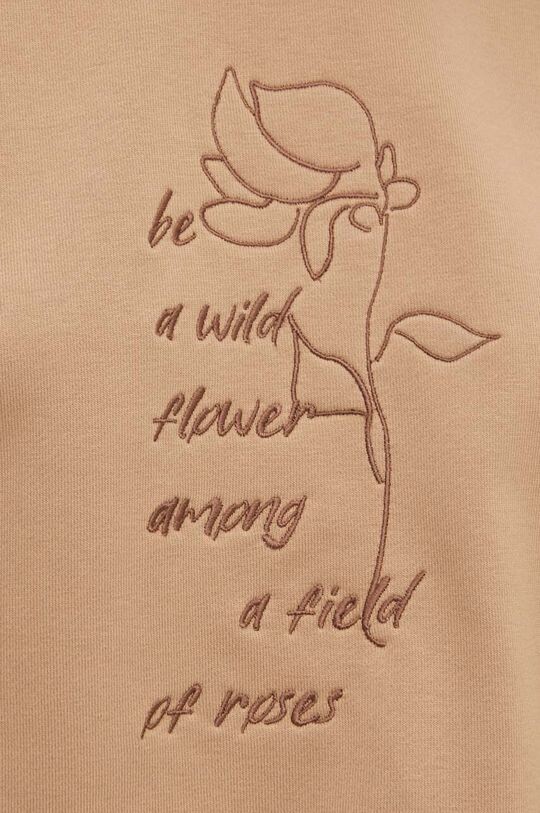 be
a wild
flower
among
a field
of roses